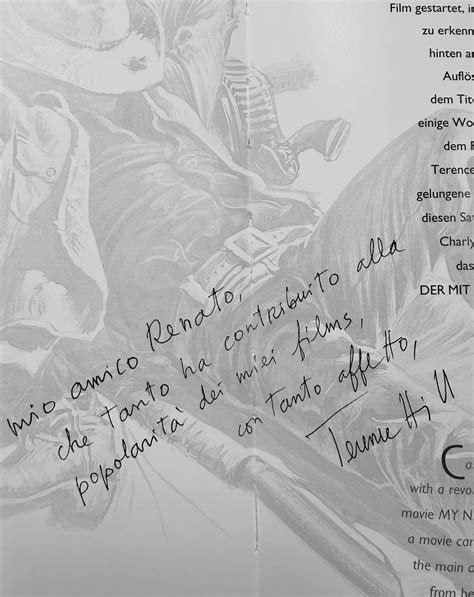 Film gestartet, i
zu erkenn
hinten a
Auflös
dem Tit
einige Wo
dem
Terence
gelungene
diesen Sa
Charly
das
DER MIT
mio amico Renato,
che tanto ha contribuito alla
popolarità dei miei films,
con tanto affetto,
Terence Hill
Ca
with a revo
movie MY N
a movie car
the main a
from be